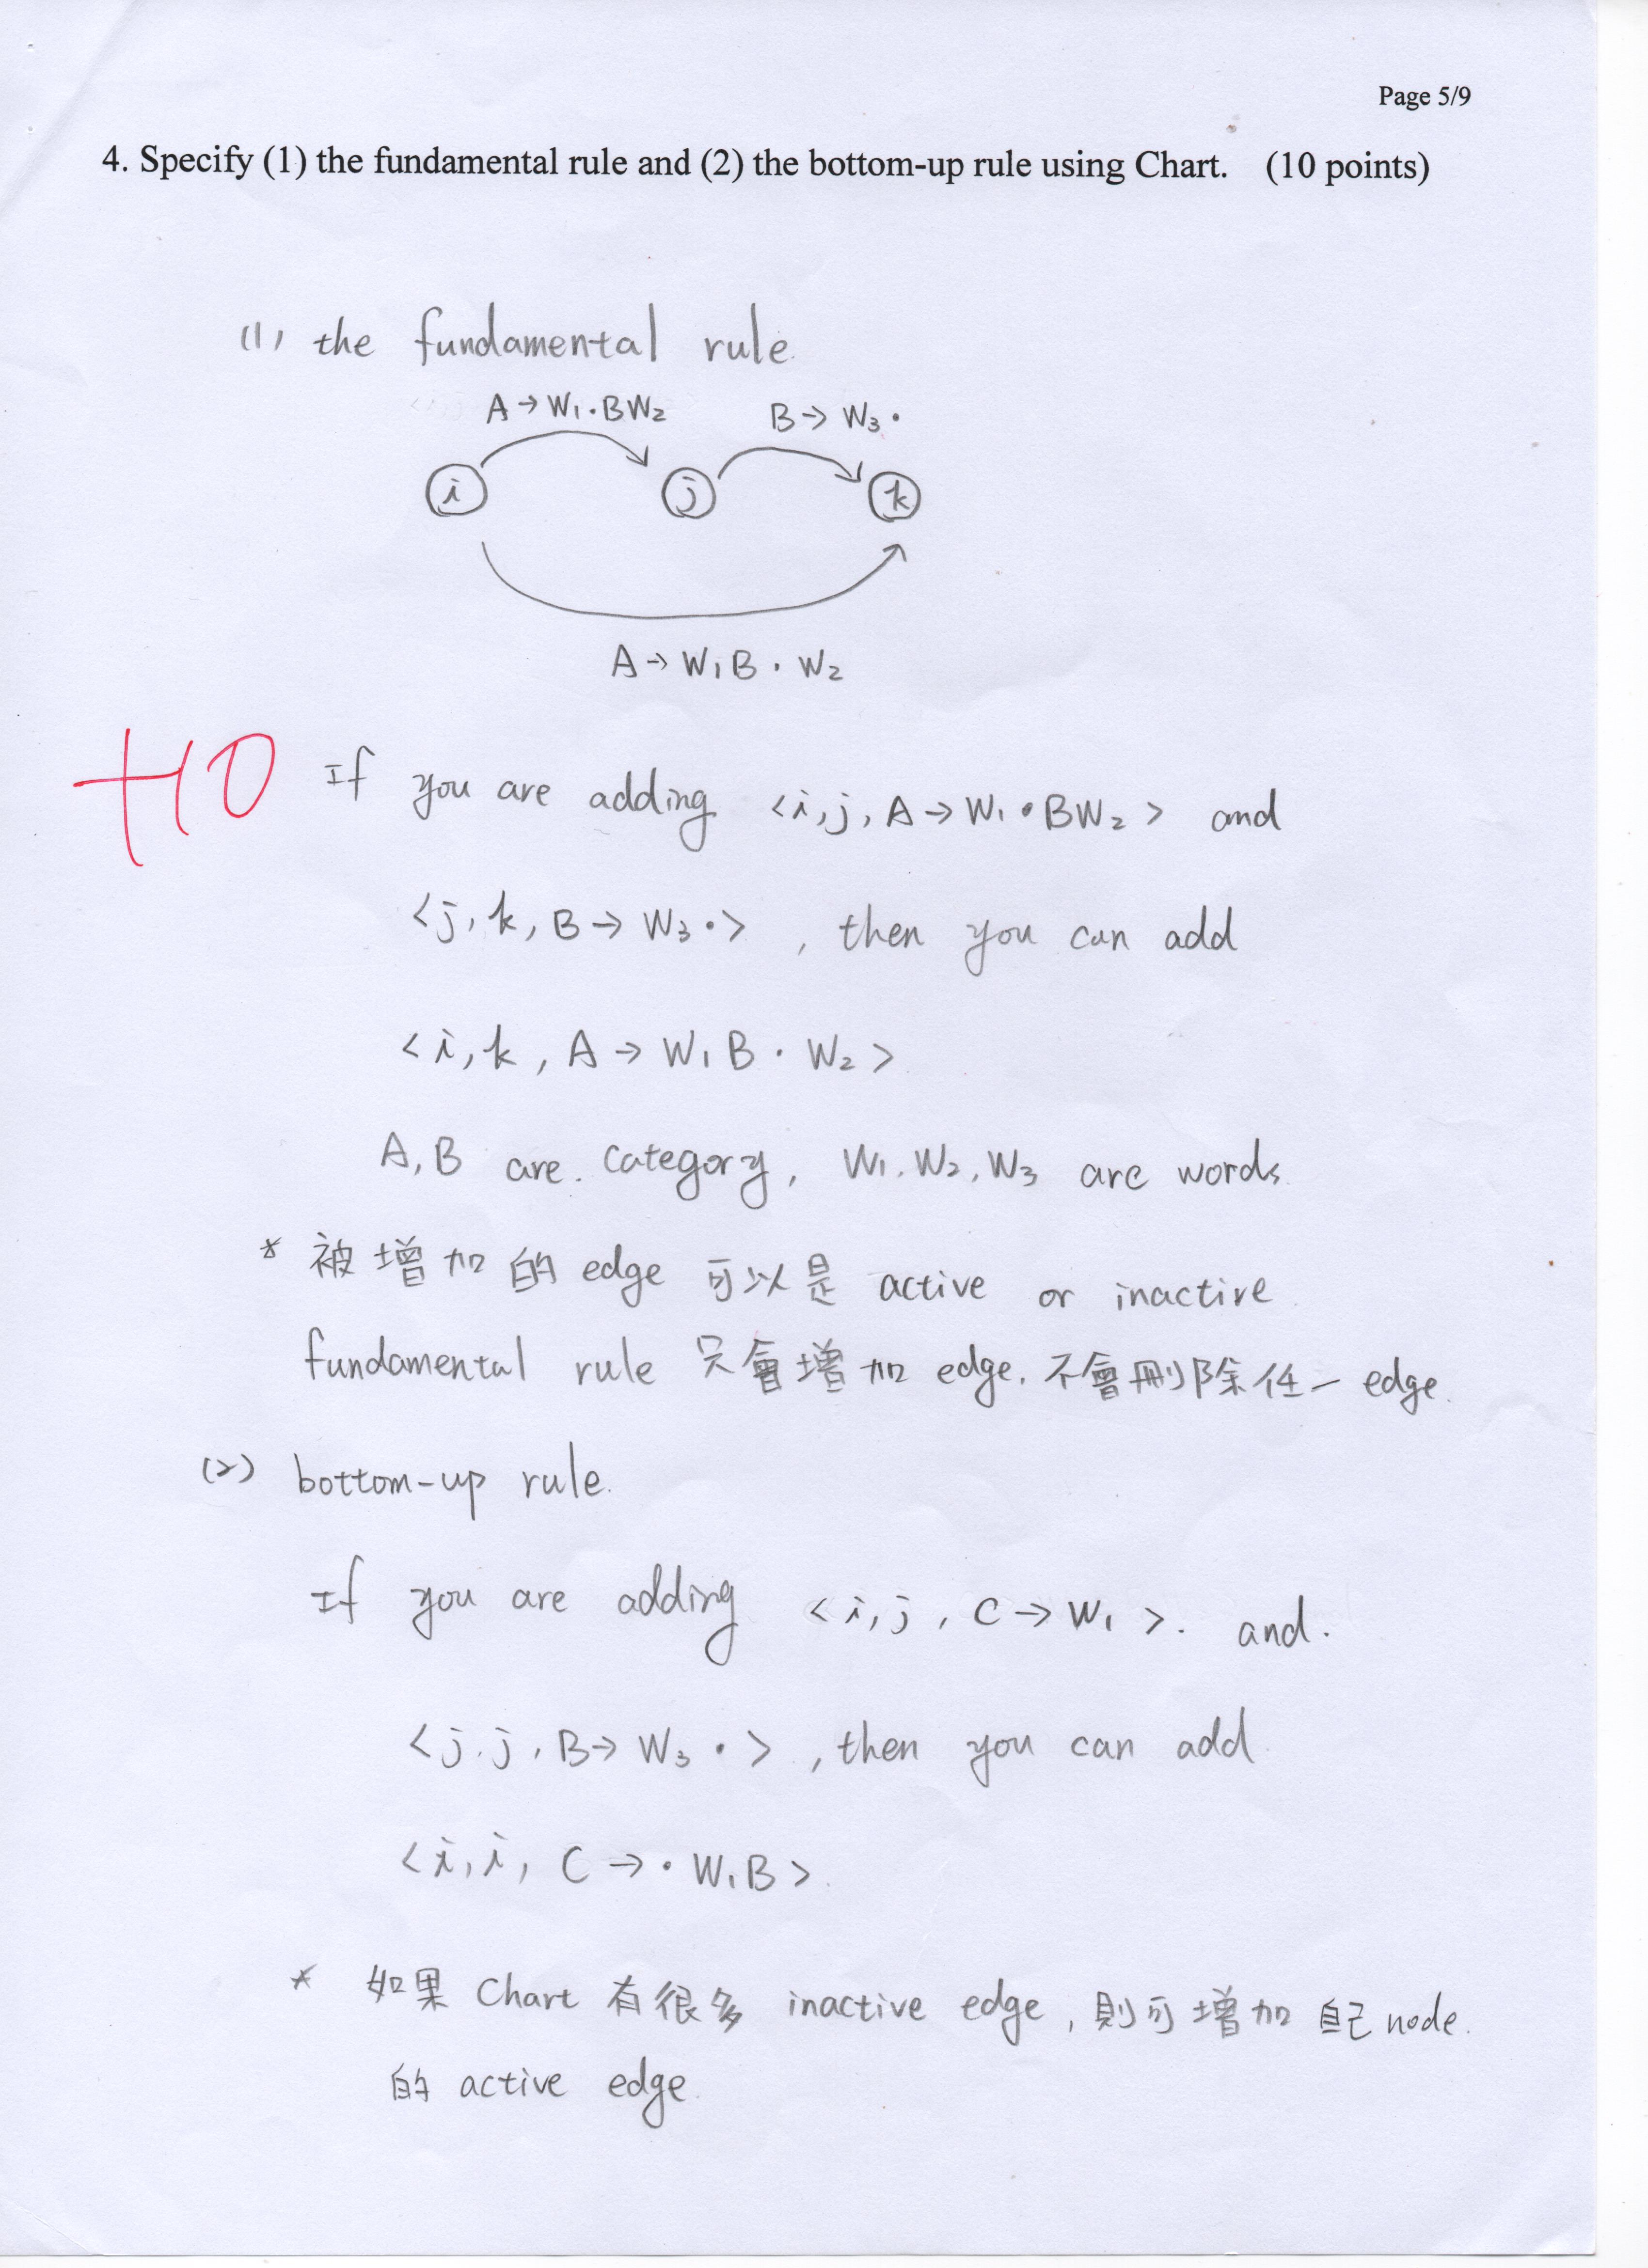 Page 5/9
4. Specify (1) the fundamental rule and (2) the bottom-up rule using Chart. (10 points)
(1) the fundamental rule.
A → W₁ · B W₂
B → W₃ ·
i
j
k
A → W₁ B · W₂
+10
If you are adding <i, j, A → W₁ · B W₂> and
<j, k, B → W₃ · > , then you can add
<i, k, A → W₁ B · W₂>
A, B are. category, W₁. W₂, W₃ are words.
* 被增加的 edge 可以是 active or inactive.
fundamental rule 只會增加 edge. 不會刪除任一 edge.
(2) bottom-up rule.
If you are adding <i, j, C → W₁ >. and.
<j. j, B → W₃ · > , then you can add
<i, i, C → · W₁ B>.
* 如果 Chart 有很多 inactive edge, 則可增加自己 node.
的 active edge.